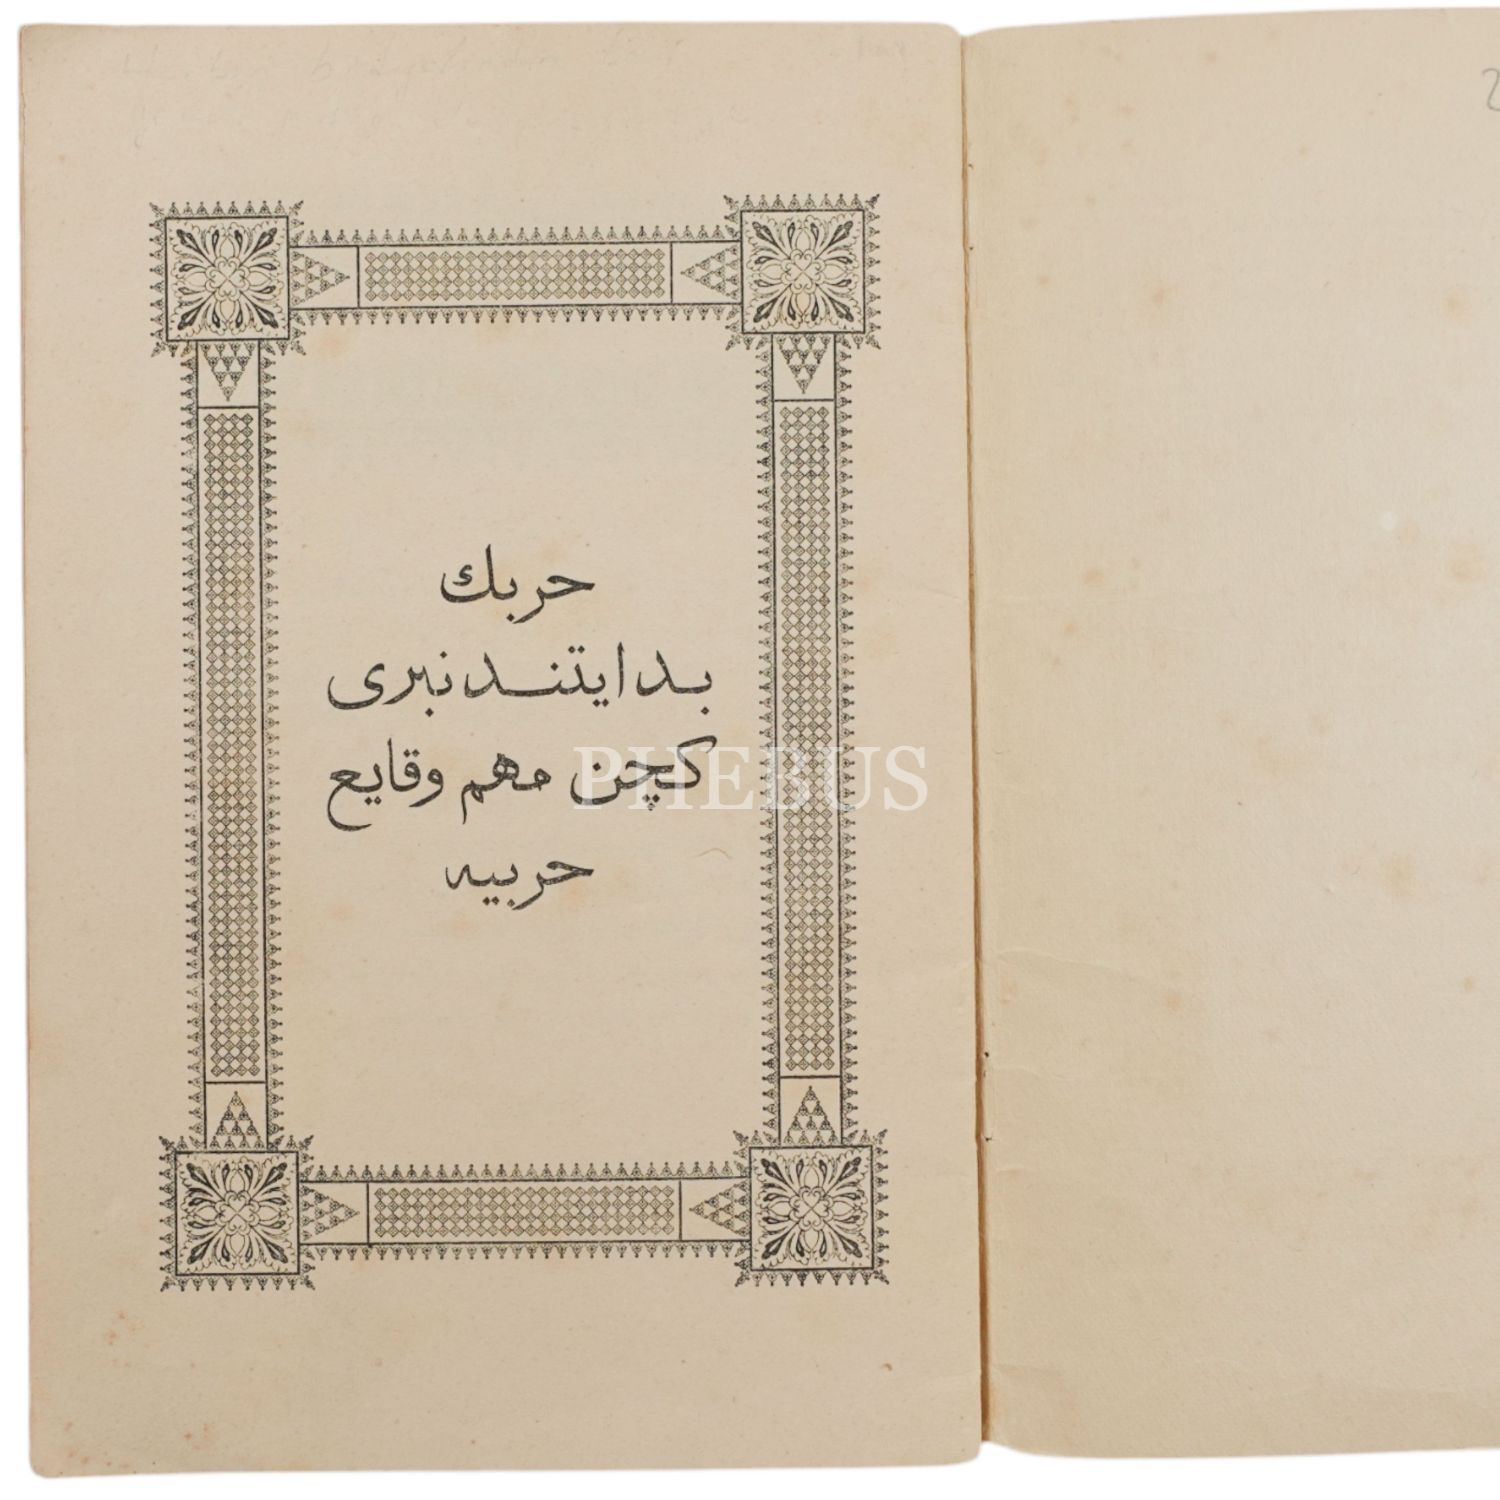 حربك
بدايتندنبرى
كچن مهم وقايع
حربيه
PHEBUS
2